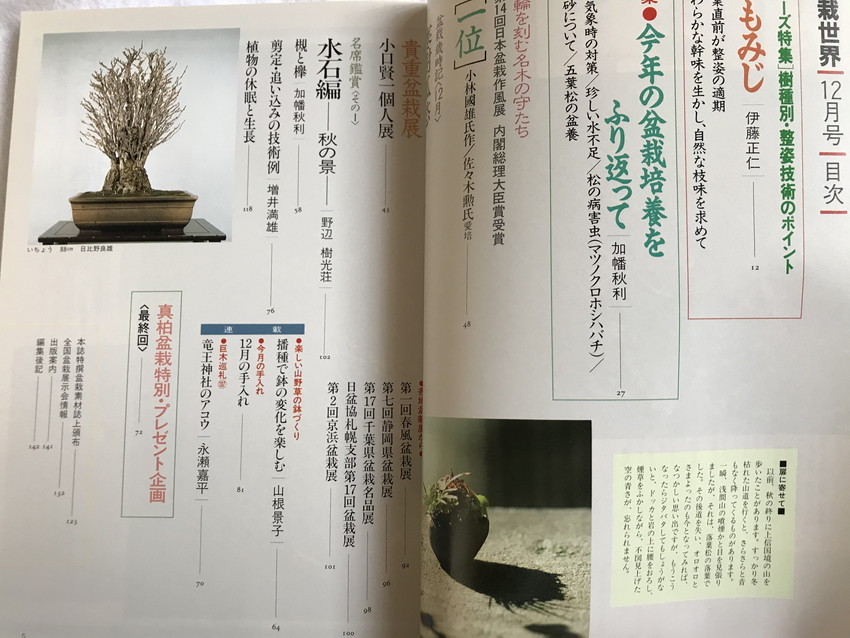 栽世界 12月号 目次
ーズ特集」樹種別・整姿技術のポイント
もみじ
伊藤正仁
12
業直前が整姿の適期
わらかな幹味を生かし、自然な枝味を求めて
集●今年の盆栽培養を
ふり返って
加幡秋利
27
気象時の対策／珍しい水不足／松の病害虫(マツノクロホシハバチ)／
砂について／五葉松の盆養
輪を刻む名木の守たち
第14回日本盆栽作風展 内閣総理大臣賞受賞
「一位」
小林國雄氏作／佐々木勲氏愛培
48
盆栽歳時記〈12月〉
貴重盆栽展
小口賢一個人展
41
名席鑑賞〈その一〉
水石編──秋の景──
野辺 樹光荘
102
槻と欅 加幡秋利
58
剪定・追い込みの技術例 増井満雄
76
植物の休眠と生長
118
いちょう 88cm 日比野良雄
第一回春風盆栽展
92
第七回静岡県盆栽展
96
第17回千葉県盆栽名品展
98
日盆協札幌支部第17回盆栽展
100
第2回京浜盆栽展
101
連載
●楽しい山野草の鉢づくり
播種で鉢の変化を楽しむ 山根景子
64
●今月の手入れ
12月の手入れ
81
●巨木巡礼
竜王神社のアコウ 永瀬嘉平
70
真柏盆栽特別・プレゼント企画
〈最終回〉
72
本誌特撰盆栽素材誌上頒布
123
全国盆栽展示会情報
132
出版案内
141
編集後記
142
■扉に寄せて■
以前、秋の終りに上信国境の山を
歩いたことがあります。すっかり冬
枯れた山道を行くと、さらさらと音
もなく降ってくるものがあります。
一瞬、浅間山の噴煙かと目を見張り
ましたが、それは、落葉松の落葉で
した。その後道を失い、オロオロと
さまよったのも今となってみれば、
なつかしい思い出ですが、もうこう
なったらジタバタしてもしょうがな
いと、ドッカと岩の上に腰をおろし、
煙草をふかしながら、不図見上げた
空の青さが、忘れられません。